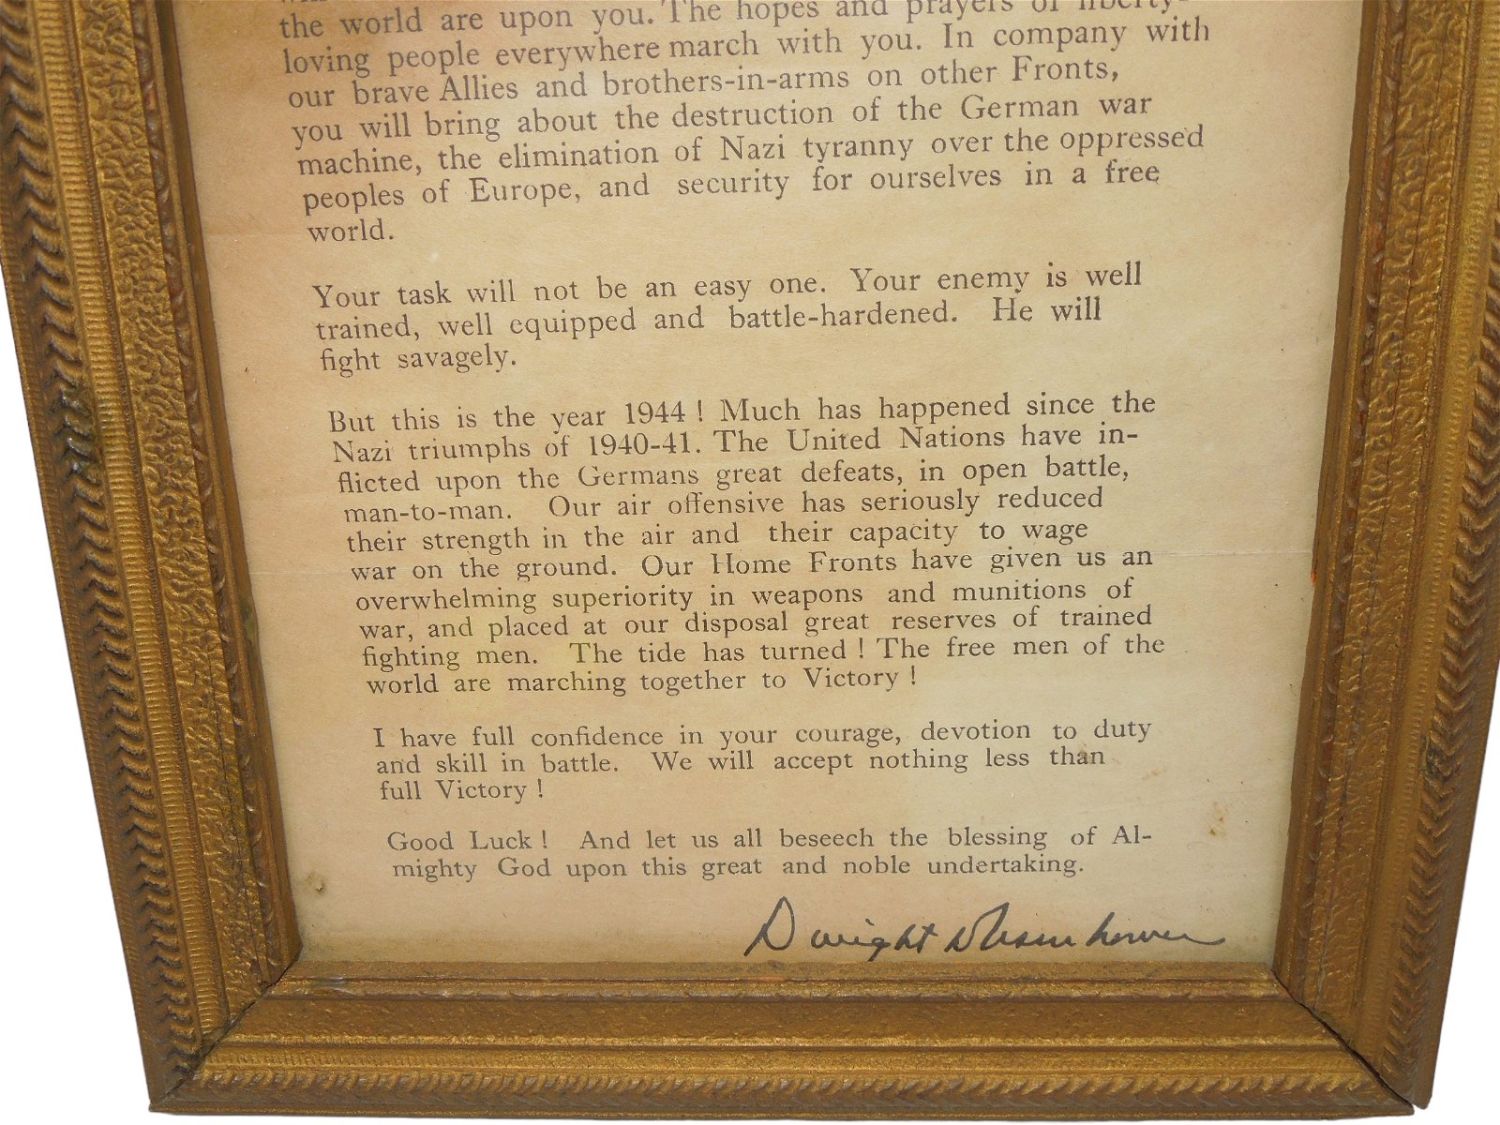 the world are upon you. The hopes and prayers of liberty-
loving people everywhere march with you. In company with
our brave Allies and brothers-in-arms on other Fronts,
you will bring about the destruction of the German war
machine, the elimination of Nazi tyranny over the oppressed
peoples of Europe, and security for ourselves in a free
world.
Your task will not be an easy one. Your enemy is well
trained, well equipped and battle-hardened. He will
fight savagely.
But this is the year 1944 ! Much has happened since the
Nazi triumphs of 1940-41. The United Nations have in-
flicted upon the Germans great defeats, in open battle,
man-to-man. Our air offensive has seriously reduced
their strength in the air and their capacity to wage
war on the ground. Our Home Fronts have given us an
overwhelming superiority in weapons and munitions of
war, and placed at our disposal great reserves of trained
fighting men. The tide has turned ! The free men of the
world are marching together to Victory !
I have full confidence in your courage, devotion to duty
and skill in battle. We will accept nothing less than
full Victory !
Good Luck ! And let us all beseech the blessing of Al-
mighty God upon this great and noble undertaking.
Dwight D Eisenhower